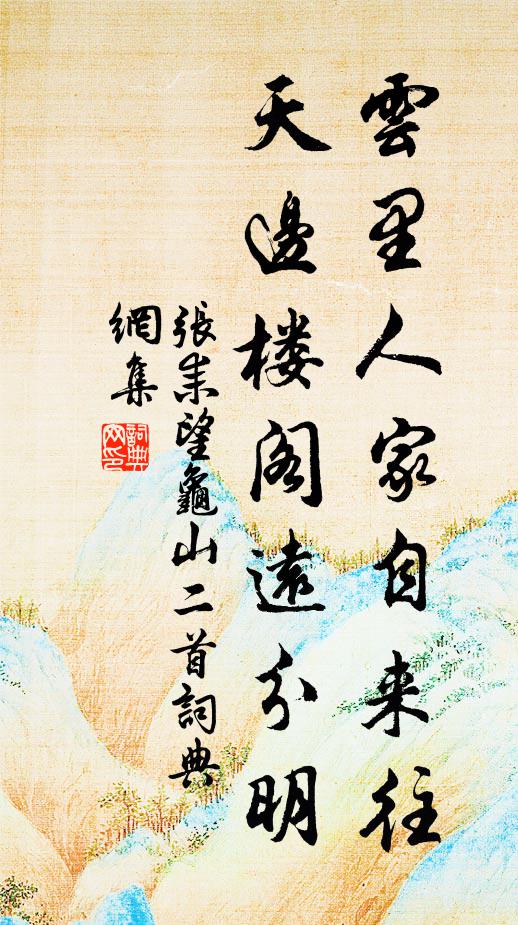 雲里人家自来往
天邊楼阁遠分明
張耒望龜山二首詞典
網集
詞典
网印